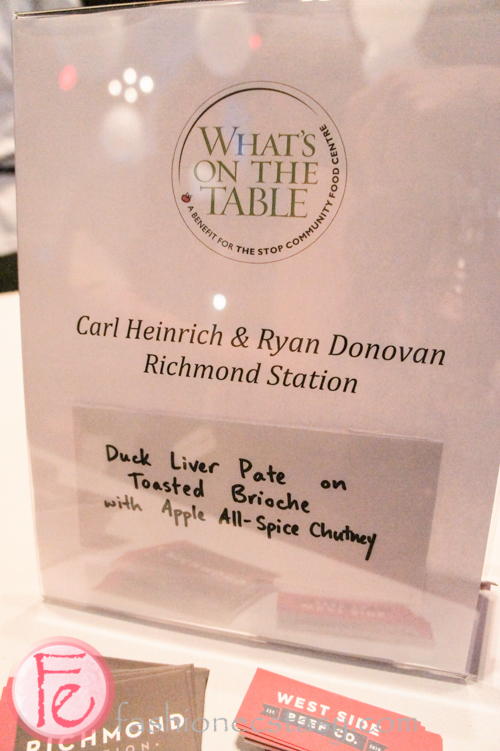 WHAT'S
ON THE
TABLE
A BENEFIT FOR THE STOP COMMUNITY FOOD CENTRE
Carl Heinrich & Ryan Donovan
Richmond Station
Duck Liver Pate on
Toasted Brioche
with Apple All-Spice Chutney
Fe
RICHMOND
STATION.
WEST SIDE
BEEF CO.